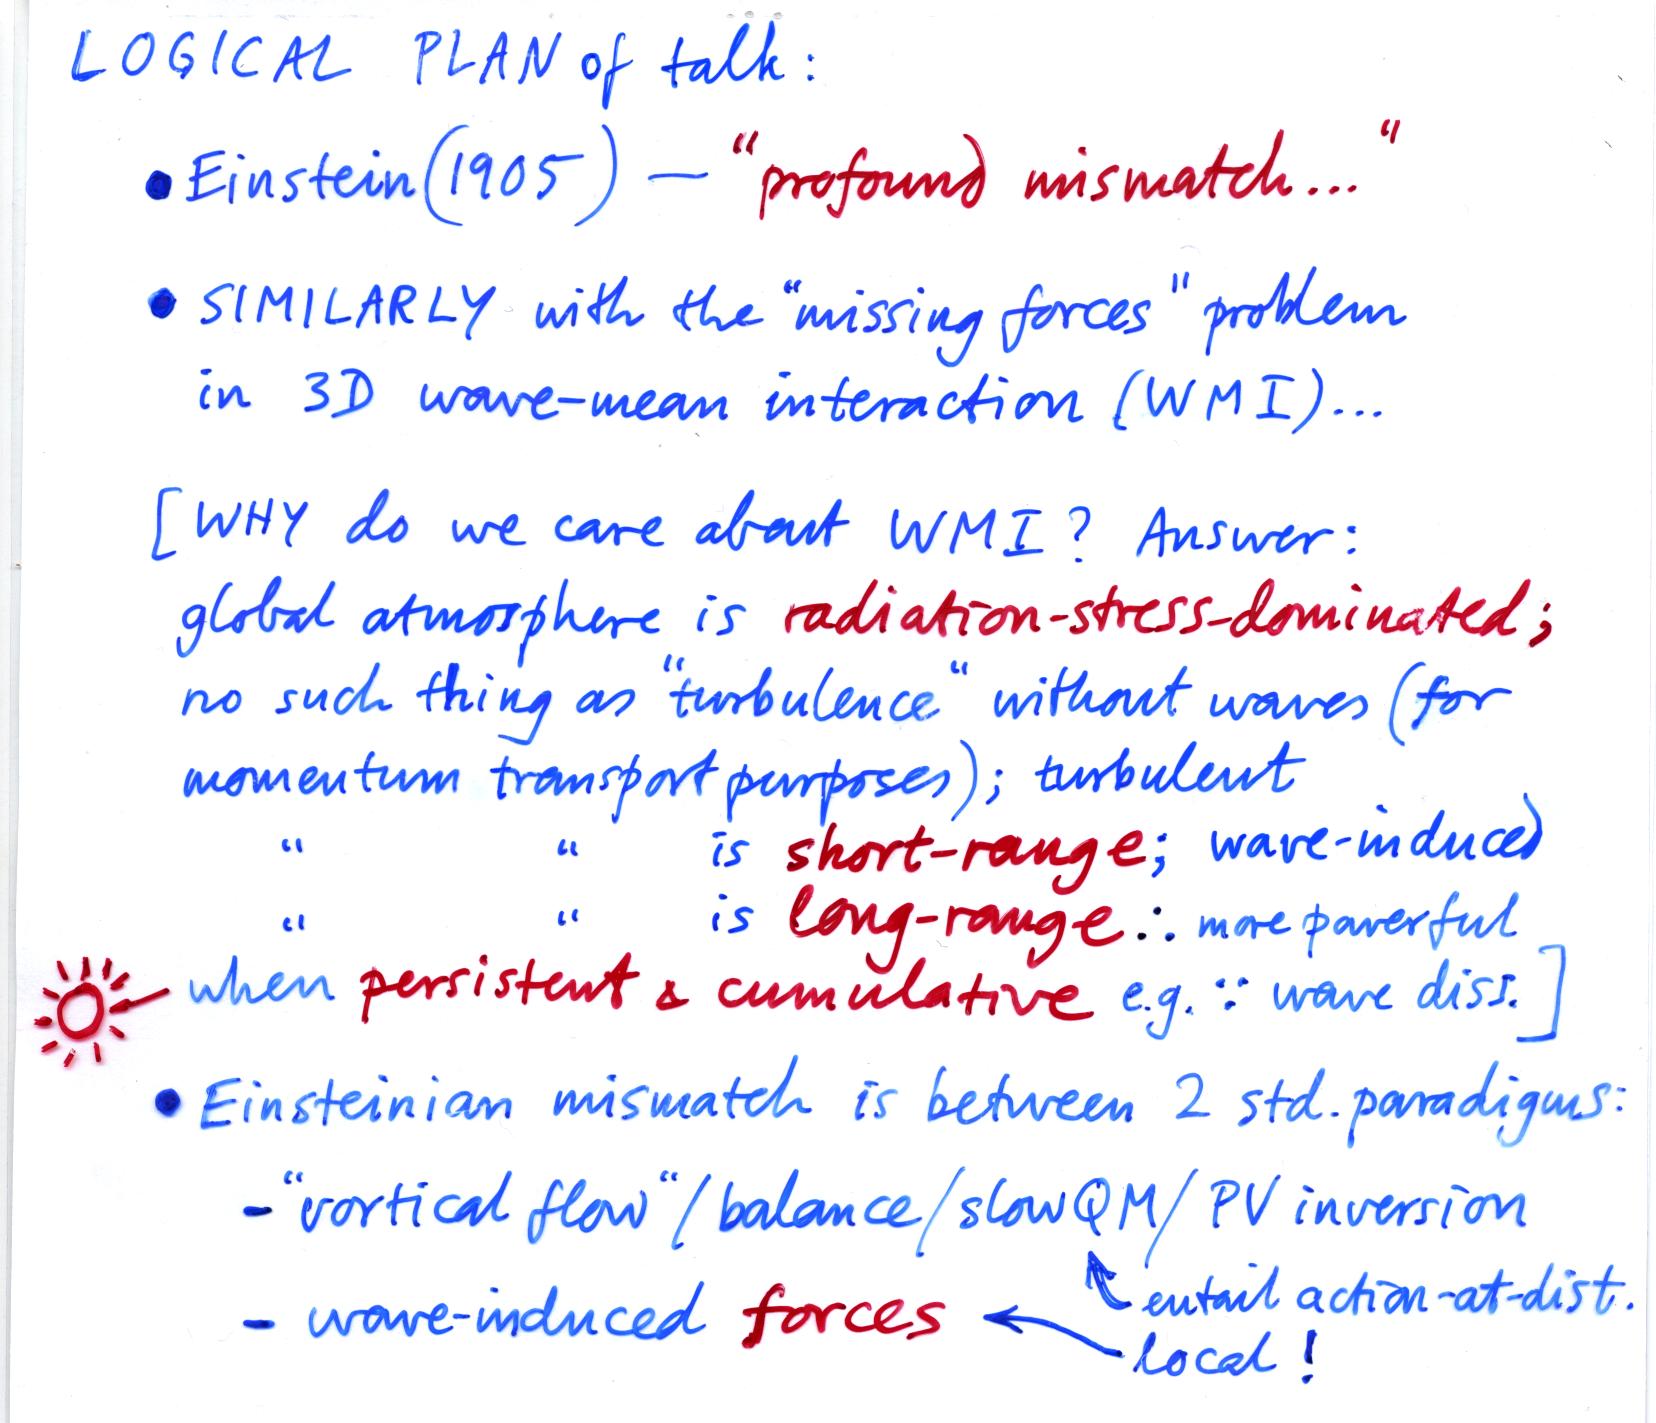 LOGICAL PLAN of talk:
• Einstein (1905) — "profound mismatch..."
• SIMILARLY with the "missing forces" problem
in 3D wave-mean interaction (WMI)...
[WHY do we care about WMI? Answer:
global atmosphere is radiation-stress-dominated;
no such thing as "turbulence" without waves (for
momentum transport purposes); turbulent
" " is short-range; wave-induced
" " is long-range ∴ more powerful
when persistent & cumulative e.g. ∵ wave diss.]
• Einsteinian mismatch is between 2 std. paradigms:
- "vortical flow"/balance/slowQM/PV inversion
entail action-at-dist.
- wave-induced forces
local!